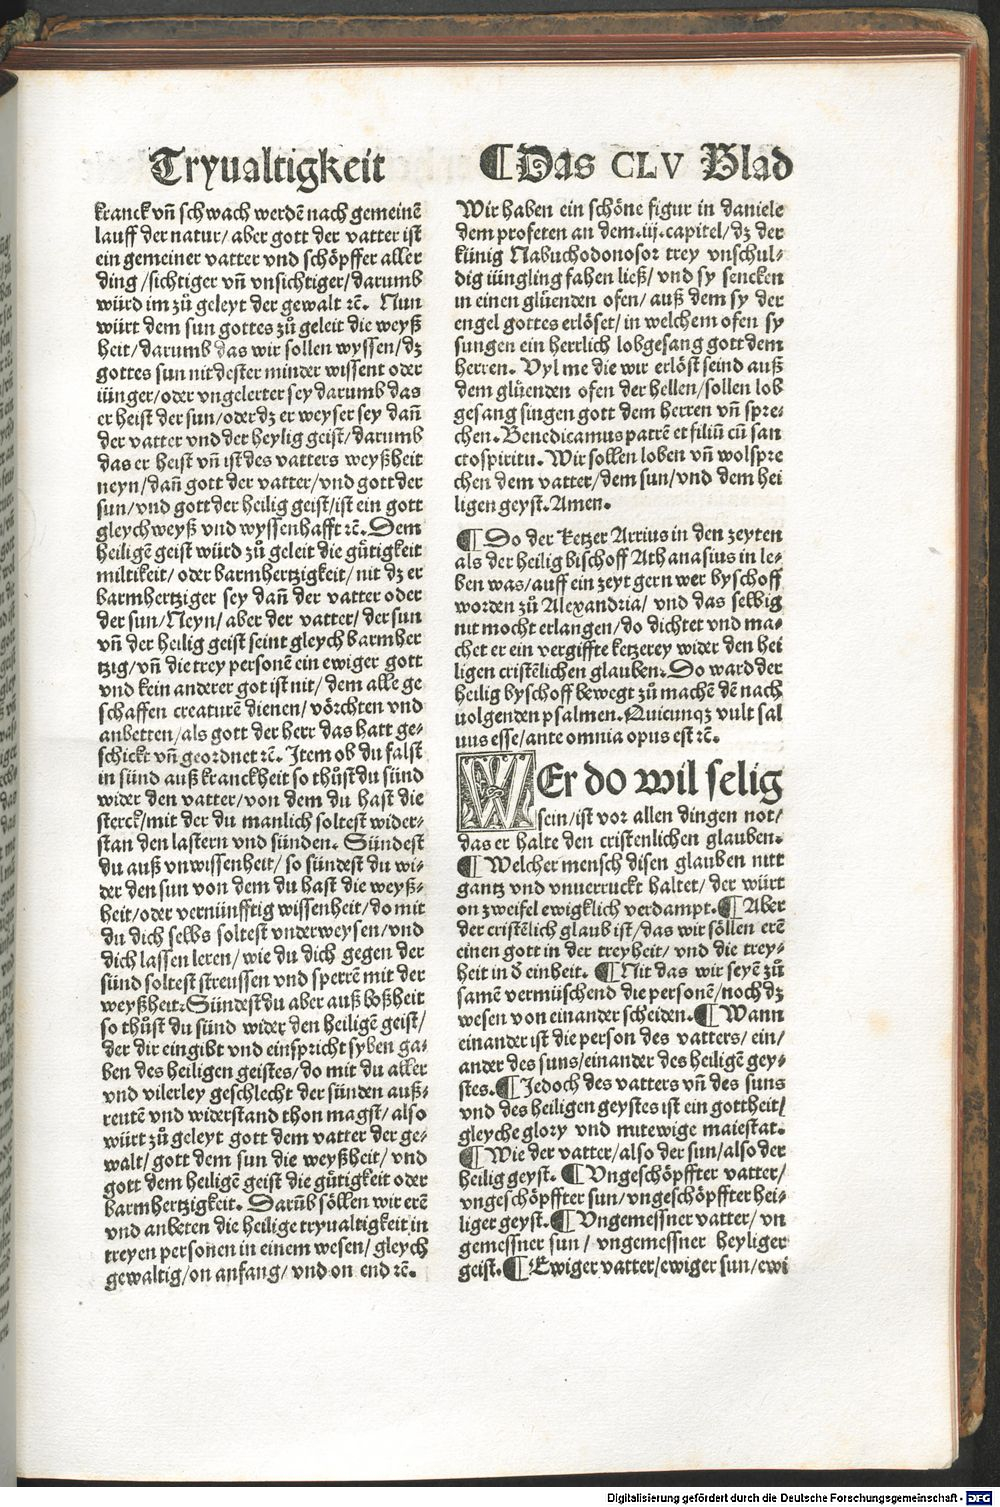 Tryualtigkeit
¶ Das CLV Blad
kranck vn̄ schwach werdē nach gemeinē
lauff der natur / aber gott der vatter ist
ein gemeiner vatter vnd schöpffer aller
ding / sichtiger vn̄ vnsichtiger / darumb
würd im zů geleyt der gewalt ꝛc̄. Nun
würt dem sun gottes zů geleit die weyß
heit / darumb das wir sollen wyssen / dz
gottes sun nit dester minder wissent oder
iünger / oder vngelerter sey darumb das
er heist der sun / oder dz er weyser sey dan̄
der vatter vnd der heylig geist / darumb
das er heist vn̄ ist des vatters weyßheit
neyn / dan̄ gott der vatter / vnd gott der
sun / vnd gott der heilig geist / ist ein gott
gleych weyß vnd wyssenhafft ꝛc̄. Dem
heiligē geist würd zů geleit die gütigkeit
miltikeit / oder barmhertzigkeit / nit dz er
barmhertziger sey dan̄ der vatter oder
der sun / Neyn / aber der vatter / der sun
vn̄ der heilig geist seint gleych barmher
tzig / vn̄ die trey personē ein ewiger gott
vnd kein anderer got ist nit / dem alle ge
schaffen creaturē dienen / vörchten vnd
anbetten / als gott der herr das hatt ge⸗
schickt vn̄ geordnet ꝛc̄. Item ob du falst
in sünd auß kranckheit so thůst du sünd
wider den vatter / von dem du hast die
sterck / mit der du manlich soltest wider⸗
stan den lastern vnd sünden. Sündest
du auß vnwissenheit / so sündest du wi⸗
der den sun von dem du hast die weyß⸗
heit / oder vernünfftig wissenheit / do mit
du dich selbs soltest vnderweysen / vnd
dich lassen leren / wie du dich gegen der
sünd soltest streussen vnd sperrē mit der
weyßheit. Sündest du aber auß boßheit
so thůst du sünd wider den heiligē geist /
der dir eingibt vnd einspricht syben ga⸗
ben des heiligen geistes / do mit du aller
vnd vilerley geschlecht der sünden auß⸗
reutē vnd widerstand thon magst / also
würt zů geleyt gott dem vatter der ge⸗
walt / gott dem sun die weyßheit / vnd
gott dem heiligē geist die gütigkeit oder
barmhertzigkeit. Darūb söllen wir erē
vnd anbeten die heilige tryualtigkeit in
treyen personen in einem wesen / gleych
gewaltig / on anfang / vnd on end ꝛc̄.
Wir haben ein schöne figur in daniele
dem profeten an dem .iij. capitel / dz der
künig Nabuchodonosor trey vnschul⸗
dig iüngling fahen ließ / vnd sy sencken
in einen glüenden ofen / auß dem sy der
engel gottes erlöset / in welchem ofen sy
sungen ein herrlich lobgesang gott dem
herren. Vyl me die wir erlöst seind auß
dem glüenden ofen der hellen / sollen lob
gesang singen gott dem herren vn̄ spre⸗
chen. Benedicamus patrē et filiū cū san
cto spiritu. Wir sollen loben vn̄ wolspre
chen dem vatter / dem sun / vnd dem hei
ligen geyst. Amen.
¶ Do der ketzer Arrius in den zeyten
als der heilig bischoff Athanasius in le⸗
ben was / auff ein zeyt gern wer byschoff
worden zů Alexandria / vnd das selbig
nit mocht erlangen / do dichtet vnd ma⸗
chet er ein vergiffte ketzerey wider den hei
ligen cristēlichen glauben. Do ward der
heilig byschoff bewegt zů machē dē nach
uolgenden psalmen. Quicunqꝫ vult sal
uus esse / ante omnia opus est ꝛc̄.
WEr do wil selig
sein / ist vor allen dingen not /
das er halte den cristenlichen glauben.
¶ Welcher mensch disen glauben nitt
gantz vnd vnuerruckt haltet / der würt
on zweifel ewigklich verdampt. ¶ Aber
der cristēlich glaub ist / das wir söllen erē
einen gott in der treyheit / vnd die trey⸗
heit in d̄ einheit. ¶ Nit das wir seyē zů
samē vermüschend die personē / noch dz
wesen von einander scheiden. ¶ Wann
ein ander ist die person des vatters / ein /
ander des suns / ein ander des heiligē gey⸗
stes. ¶ Jedoch des vatters vn̄ des suns
vnd des heiligen geystes ist ein gottheit /
gleyche glory vnd mitewige maiestat.
¶ Wie der vatter / also der sun / also der
heilig geyst. ¶ Vngeschöpffter vatter /
vngeschöpffter sun / vngeschöpffter hei⸗
liger geyst. ¶ Vngemessner vatter / vn
gemessner sun / vngemessner heyliger
geist. ¶ Ewiger vatter / ewiger sun / ewi
Digitalisierung gefördert durch die Deutsche Forschungsgemeinschaft - DFG